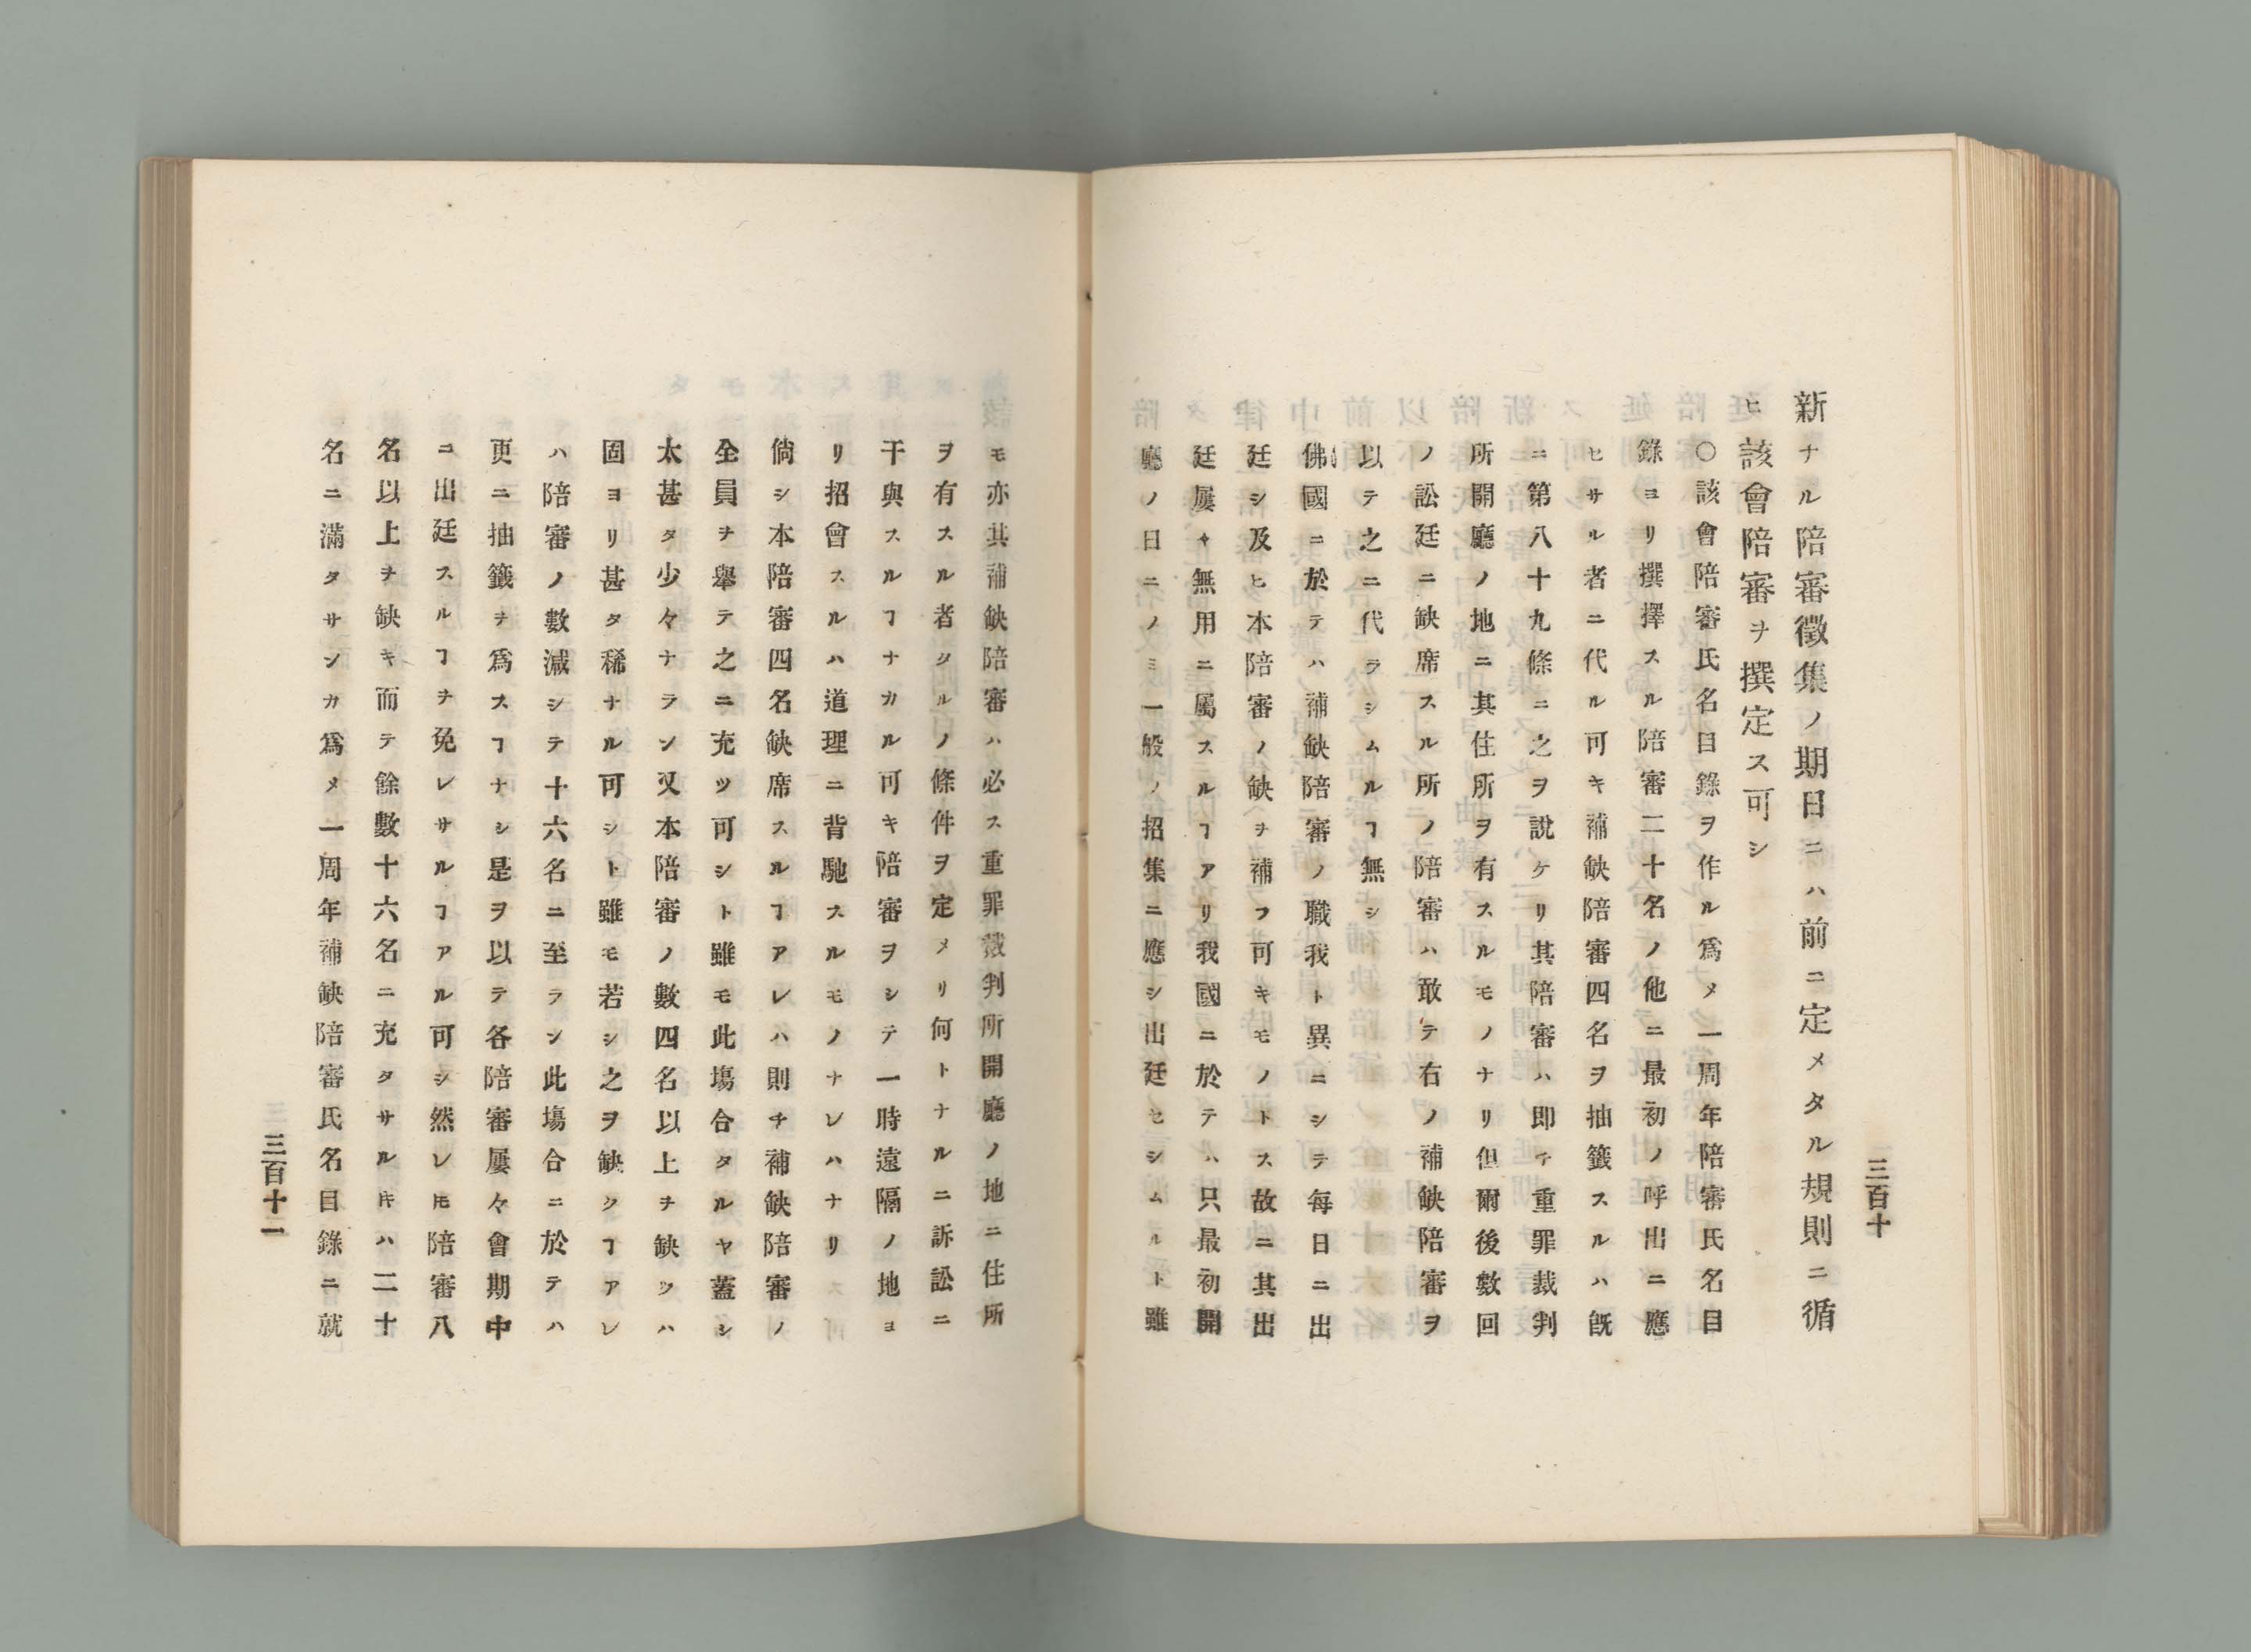 三百十
新ナル陪審徵集ノ期日ニハ前ニ定メタル規則ニ循
ヒ該會陪審ヲ撰定ス可シ
○該會陪審氏名目錄ヲ作ル爲メ一周年陪審氏名目
錄ヨリ撰擇スル陪審二十名ノ他ニ最初ノ呼出ニ應
セサル者ニ代ル可キ補缺陪審四名ヲ抽籤スルハ旣
ニ第八十九條ニ之ヲ說ケリ其陪審ハ即チ重罪裁判
所開廳ノ地ニ其住所ヲ有スルモノナリ但爾後數回
ノ訟廷ニ缺席スル所ノ陪審ハ敢テ右ノ補缺陪審ヲ
以テ之ニ代ラシムルヿ無シ
佛國ニ於テハ補缺陪審ノ職我ト異ニシテ每日ニ出
廷シ及ヒ本陪審ノ缺ヲ補フ可キモノトス故ニ其出
廷屢々無用ニ屬スルヿアリ我國ニ於テハ只最初開
廳ノ日ニノミ一般ノ招集ニ應シ出廷セシムルト雖
モ亦其補缺陪審ハ必ス重罪裁判所開廳ノ地ニ住所
ヲ有スル者タルノ條件ヲ定メリ何トナルニ訴訟ニ
干與スルヿナカル可キ陪審ヲシテ一時遠隔ノ地ヨ
リ招會スルハ道理ニ背馳スルモノナレハナリ
倘シ本陪審四名缺席スルヿアレハ則チ補缺陪審ノ
全員ヲ舉テ之ニ充ツ可シト雖モ此塲合タルヤ蓋シ
太甚タ少々ナラン又本陪審ノ數四名以上ヲ缺ツハ
固ヨリ甚タ稀ナル可シト雖モ若シ之ヲ缺クヿアレ
ハ陪審ノ數減シテ十六名ニ至ラン此塲合ニ於テハ
更ニ抽籤ヲ爲スヿナシ是ヲ以テ各陪審屢々會期中
ニ出廷スルヿヲ免レサルヿアル可シ然レ𪜈陪審八
名以上ヲ缺キ而テ餘數十六名ニ充タサルキハ二十
名ニ滿タサンカ爲メ一周年補缺陪審氏名目錄ニ就
三百十一